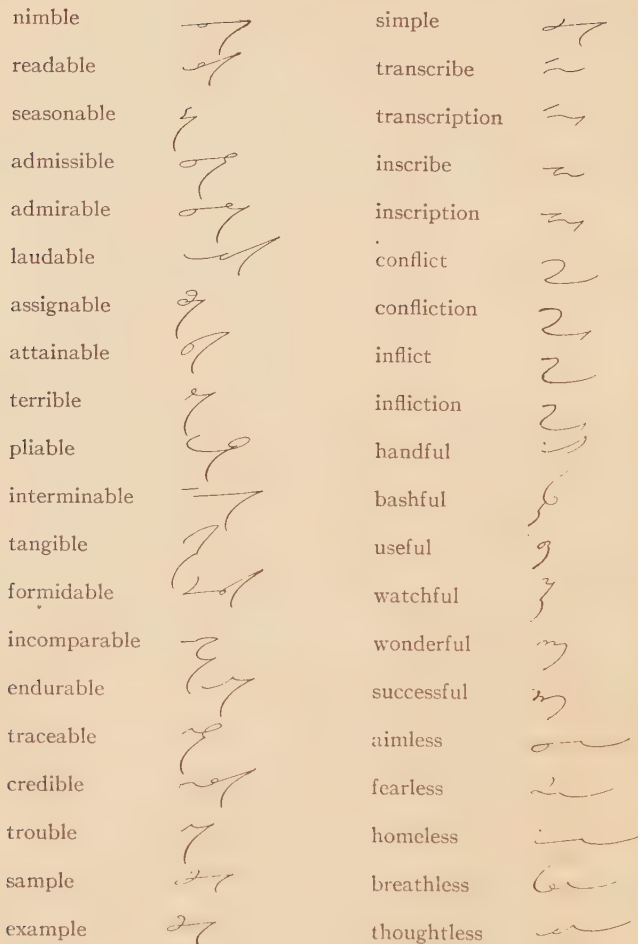 nimble
readable
seasonable
admissible
admirable
laudable
assignable
attainable
terrible
pliable
interminable
tangible
formidable
incomparable
endurable
traceable
credible
trouble
sample
example
simple
transcribe
transcription
inscribe
inscription
conflict
confliction
inflict
infliction
handful
bashful
useful
watchful
wonderful
successful
aimless
fearless
homeless
breathless
thoughtless